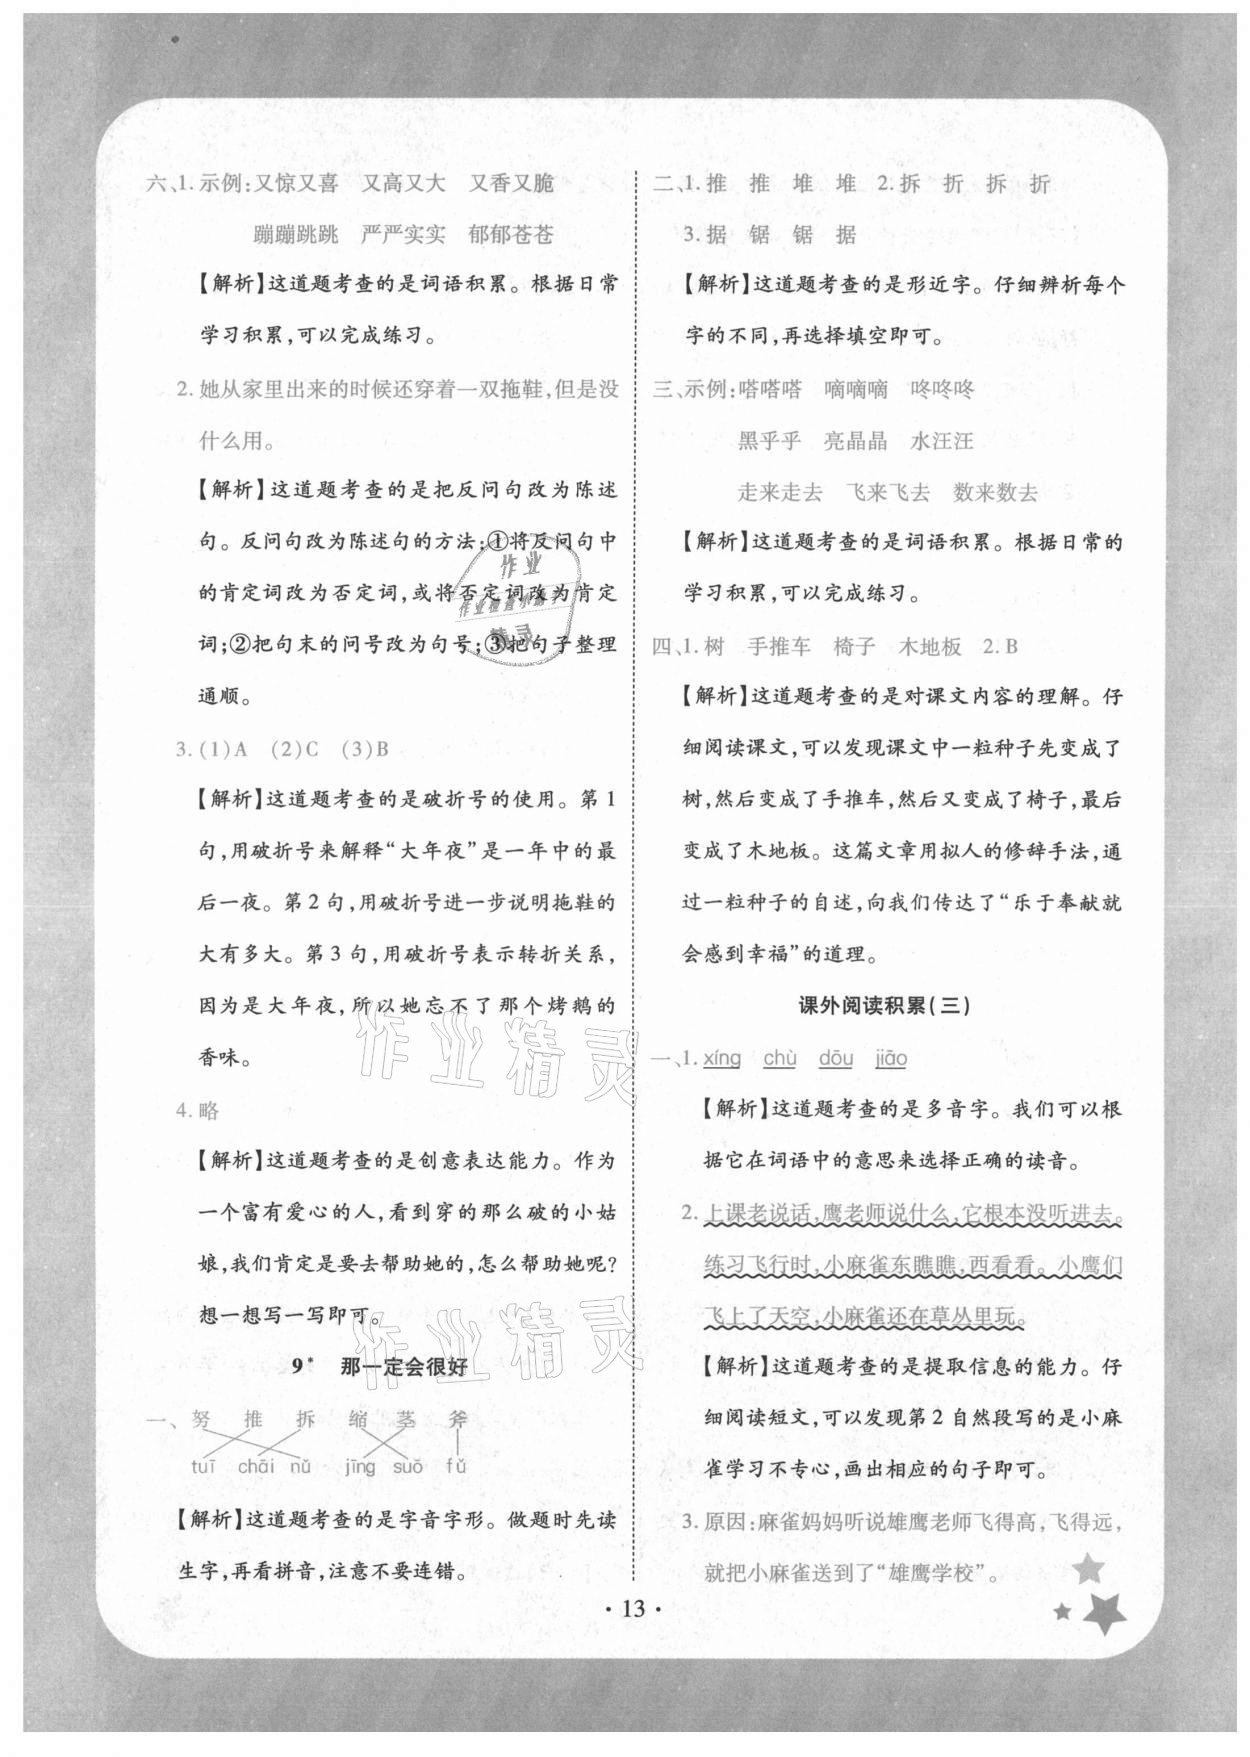 六、1. 示例:又惊又喜 又高又大 又香又脆
蹦蹦跳跳 严严实实 郁郁苍苍
【解析】这道题考查的是词语积累。根据日常
学习积累,可以完成练习。
2. 她从家里出来的时候还穿着一双拖鞋,但是没
什么用。
【解析】这道题考查的是把反问句改为陈述
句。反问句改为陈述句的方法:①将反问句中
的肯定词改为否定词,或将否定词改为肯定
词;②把句末的问号改为句号;③把句子整理
通顺。
3. (1)A (2)C (3)B
【解析】这道题考查的是破折号的使用。第1
句,用破折号来解释“大年夜”是一年中的最
后一夜。第2句,用破折号进一步说明拖鞋的
大有多大。第3句,用破折号表示转折关系,
因为是大年夜,所以她忘不了那个烤鹅的
香味。
4. 略
【解析】这道题考查的是创意表达能力。作为
一个富有爱心的人,看到穿的那么破的小姑
娘,我们肯定是要去帮助她的,怎么帮助她呢?
想一想写一写即可。
9* 那一定会很好
一、努 推 拆 缩 茎 斧
tuī chāi nǔ jīng suō fǔ
【解析】这道题考查的是字音字形。做题时先读
生字,再看拼音,注意不要连错。
二、1. 推 推 堆 堆 2. 拆 折 拆 折
3. 据 锯 锯 据
【解析】这道题考查的是形近字。仔细辨析每个
字的不同,再选择填空即可。
三、示例:嗒嗒嗒 嘀嘀嘀 咚咚咚
黑乎乎 亮晶晶 水汪汪
走来走去 飞来飞去 数来数去
【解析】这道题考查的是词语积累。根据日常的
学习积累,可以完成练习。
四、1. 树 手推车 椅子 木地板 2. B
【解析】这道题考查的是对课文内容的理解。仔
细阅读课文,可以发现课文中一粒种子先变成了
树,然后变成了手推车,然后又变成了椅子,最后
变成了木地板。这篇文章用拟人的修辞手法,通
过一粒种子的自述,向我们传达了“乐于奉献就
会感到幸福”的道理。
课外阅读积累(三)
一、1. xíng chù dōu jiāo
【解析】这道题考查的是多音字。我们可以根
据它在词语中的意思来选择正确的读音。
2. 上课老说话,鹰老师说什么,它根本没听进去。
练习飞行时,小麻雀东瞧瞧,西看看。小鹰们
飞上了天空,小麻雀还在草丛里玩。
【解析】这道题考查的是提取信息的能力。仔
细阅读短文,可以发现第2自然段写的是小麻
雀学习不专心,画出相应的句子即可。
3. 原因:麻雀妈妈听说雄鹰老师飞得高,飞得远,
就把小麻雀送到了“雄鹰学校”。
· 13 ·
作业
作业检查小助手
精灵
作业精灵
作业精灵